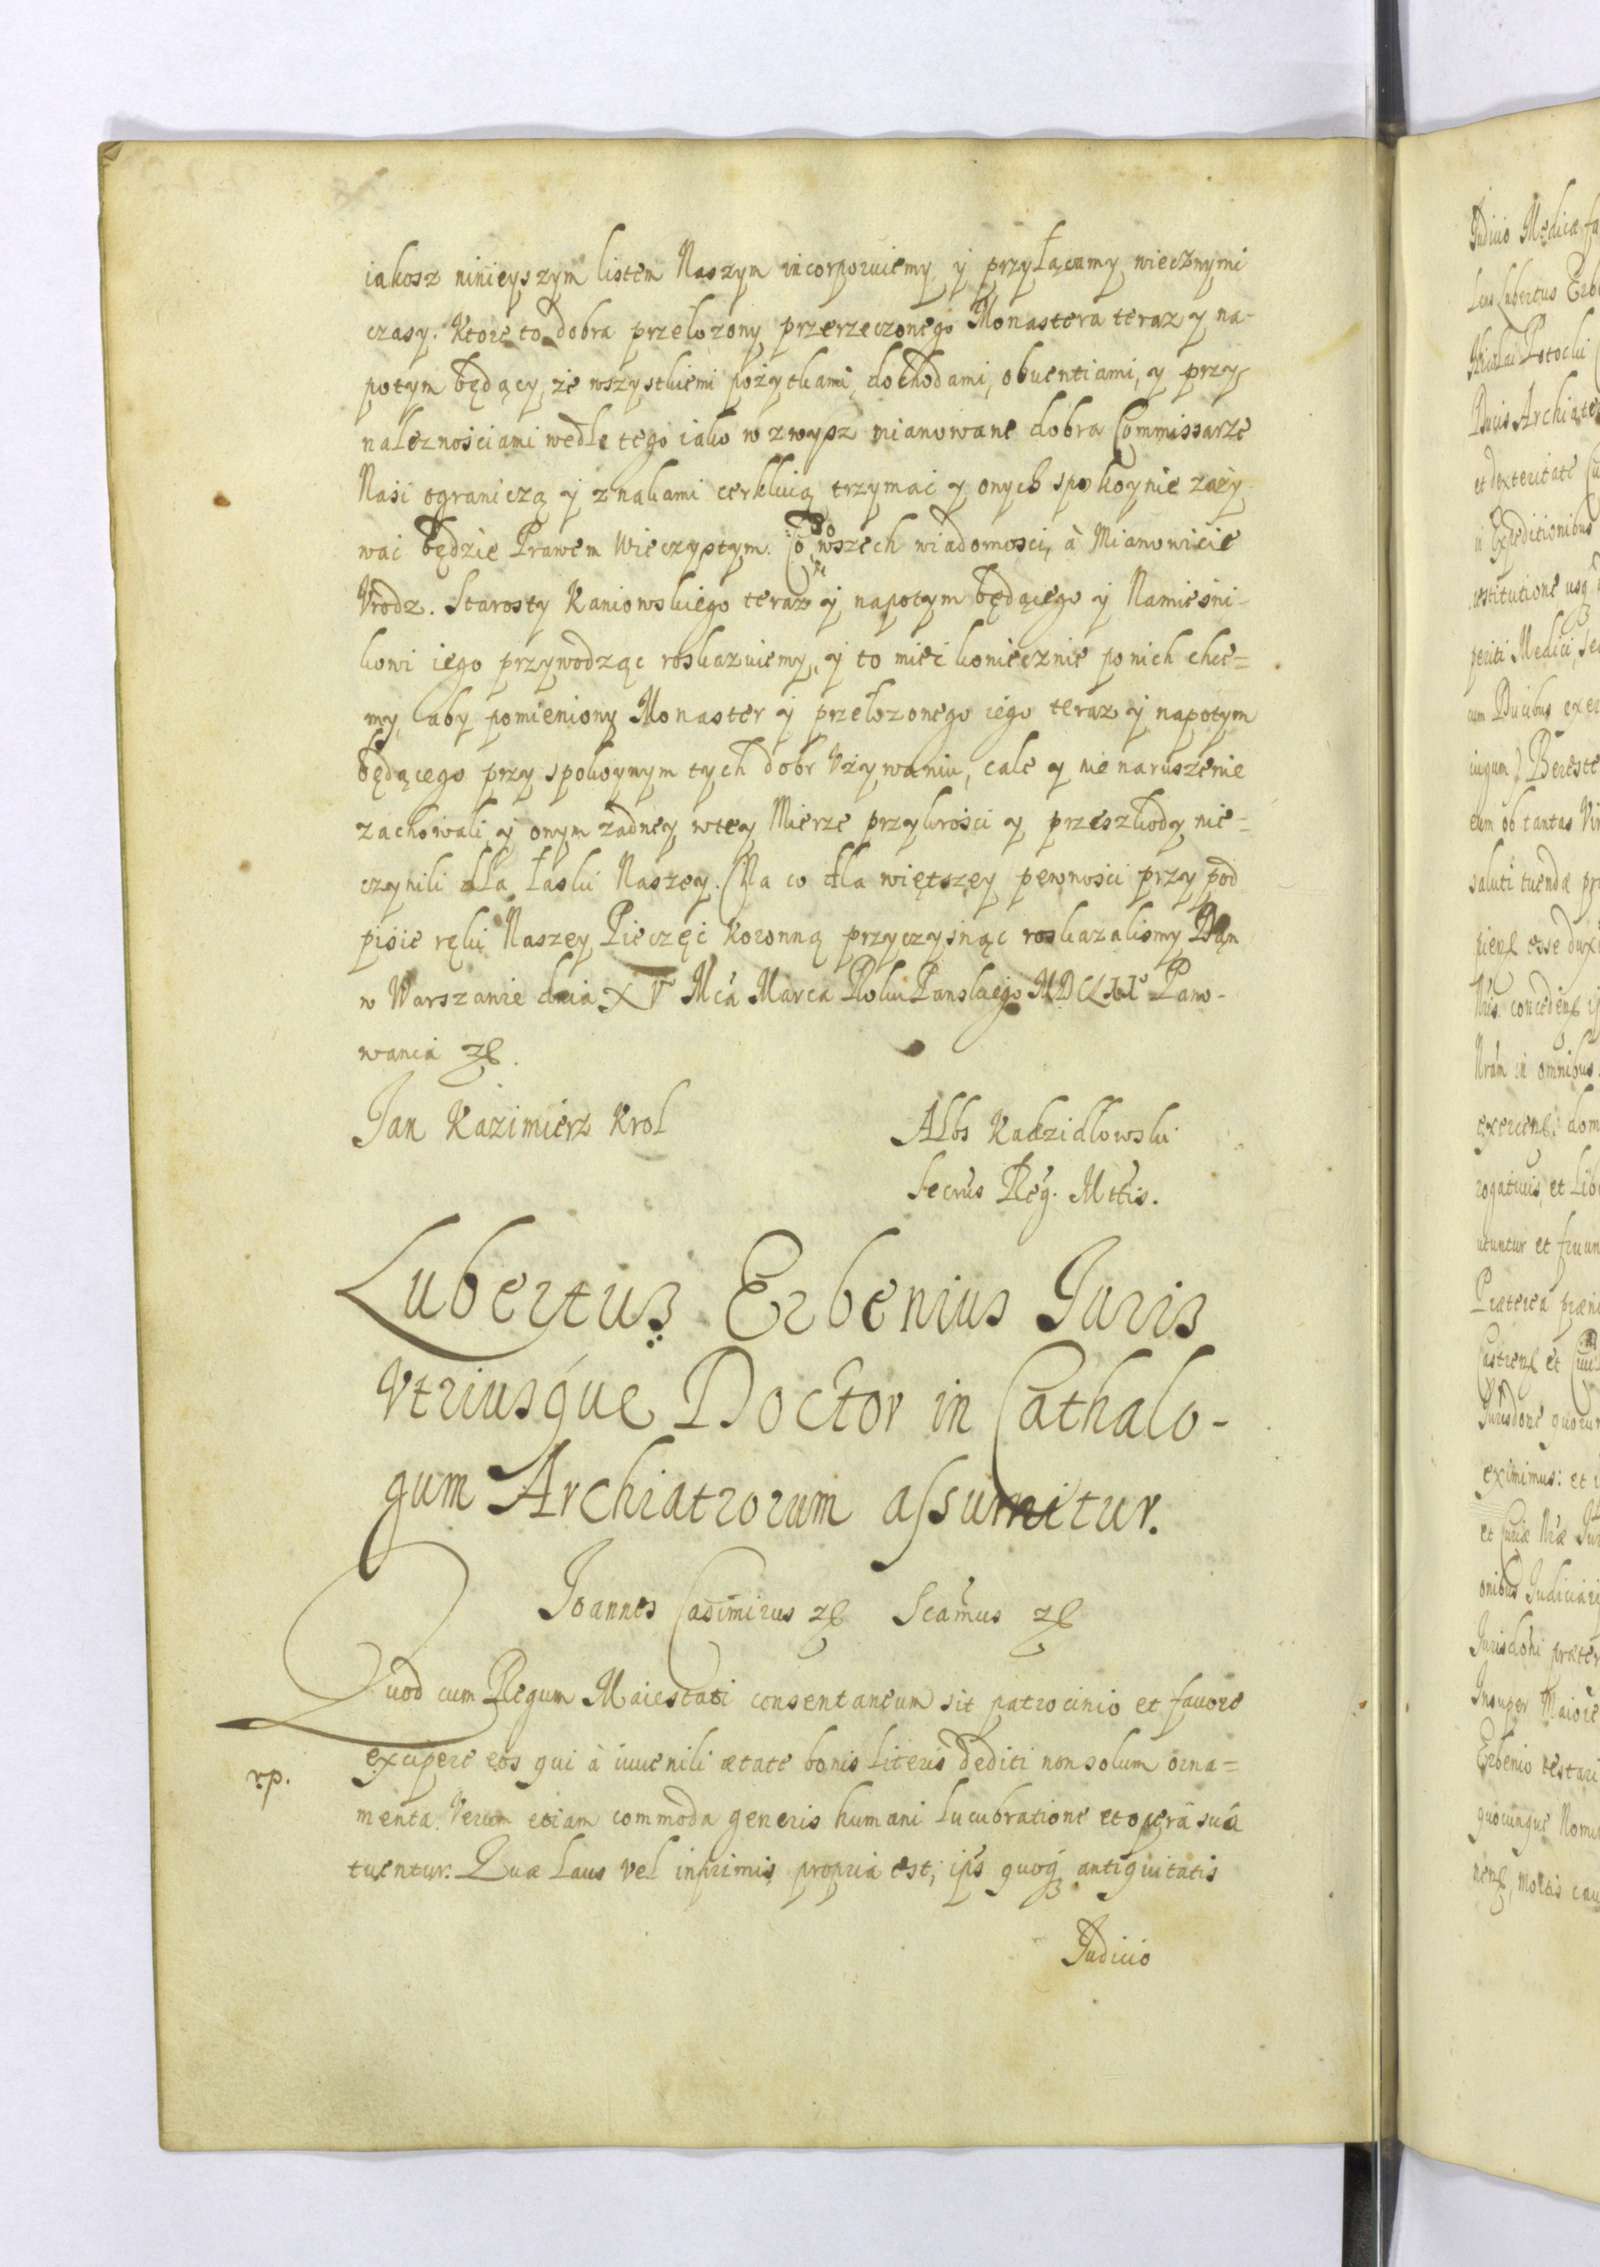 iakosz ninieyszym listem Naszym incorporuiemy y przyłącamy wiecznymi
czasy. Ktore to dobra przełozony przerzeczonego Monastera teraz y na-
potym będący, ze wszystkiemi pożytkami, dochodami, obuentiami, y przy
należnosciami wedle tego iako w zwysz mianowane dobra Commissarze
Nasi ograniczą y znakami cerkluią trzymać y onych spokoynie zaży
wać będzie Prawem Wieczystym. Co do wszech wiadomosci, à Mianowicie
Vrodz. Starosty Kaniowskiego teraz y napotym będącego y Namieśni-
kowi iego przywodząc roskazuiemy, y to mieć koniecznie po nich chce=
my, aby pomieniony Monaster y przełozonego iego teraz y napotym
będącego przy spokoynym tych dobr Vżywaniu, cale y nienaruszenie
zachowali y onym żadney wtey Mierze przykrości y przeszkody nie=
czynili dla łaski Naszey. Na co dla więtszey pewności przy pod
pisie ręki Naszey Pieczęć Koronną przycisnąc roskazalismy Dan
w Warszawie dnia XV Mca Marca Roku Panskiego Pano-
wania
Jan Kazimierz Krol Albs Kadzidlowski
Secrus Reg. Mttis.
Lubertus Erbenius Juris
Vtriusque Doctor in Cathalo-
gum Archiatrorum assumitur.
Joannes Casimirus &c Scamus &c
Quod cum Regum Maiestati consentaneum sit patrocinio et favore
excipere eos qui à iuvenili ætate bonis literis dediti non solum orna=
rp.
menta. Verum etiam commoda generis humani lucubratione et operâ suâ
tuentur. Quæ Laus vel inprimis propria est, ips quoq antiquitatis
Judicio
Judicio Medicæ fa
Lubertus Erbe
Nicolai Potocki
Ducis Archiater
et dexteritate
in Expeditionibus
restitutione usq
periti Medici, se
cum Ducibus exer
iugum) Bereste
eum ob tantas Vir
saluti tuendæ pr
esse dux
Nris. conceden
Nram in omnibus
exercen dom
rogativis, et Lib
utuntur et fruun
Præterea præno
Castren et Civi
Jurisdone quorum
eximimus: et
et Curiæ Nræ Jur
onibus Judiciari
Jurisdoni præter
Insuper Maiore
Erbenio testari
quocunque Nomi